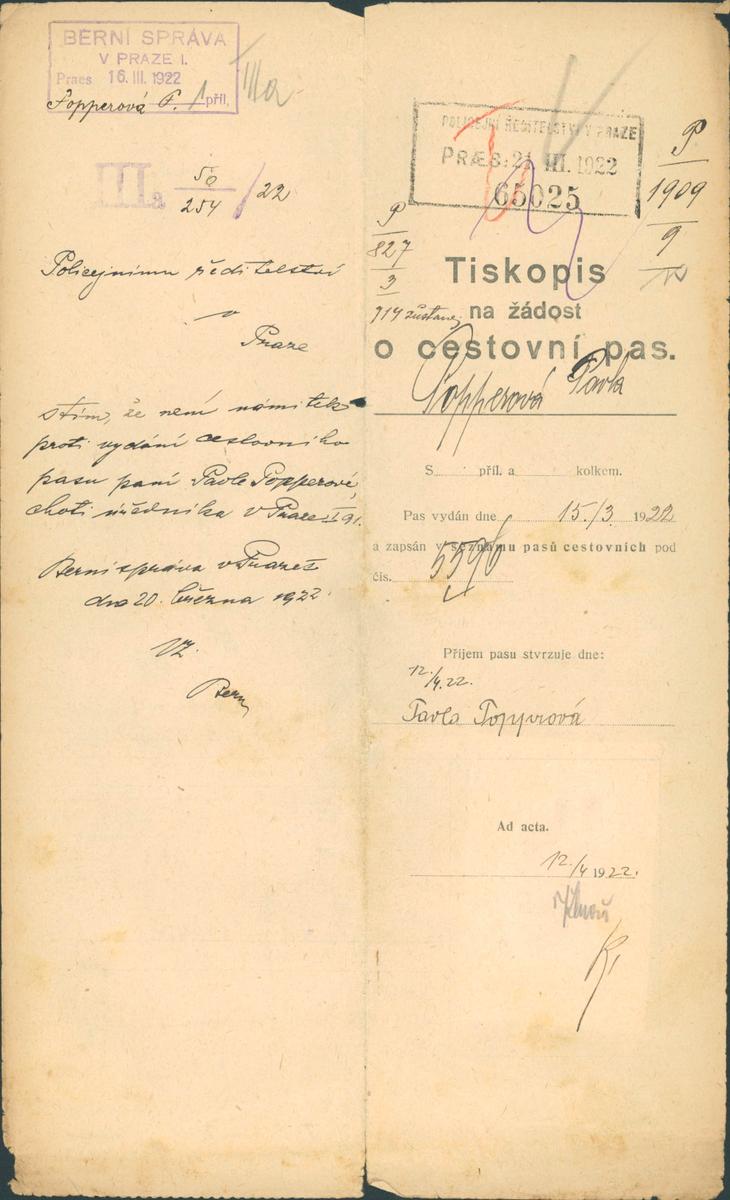 BERNÍ SPRÁVA
V PRAZE I.
Praes 16. III. 1922
Popperová P. 1 příl.
IIIa
IIIa 50/254 / 22
Policejnímu ředitelství
v
Praze
s tím, že není námitek
proti vydání cestovního
pasu paní Pavle Popperové,
choti úředníka v Praze I 91.
Berní správa v Praze I
dne 20. března 1922.
VZ.
POLICEJNÍ ŘEDITELSTVÍ V PRAZE
PRÆS: 21 III. 1922
65025
P
1909
9
P
827
3
914 zůstává
Tiskopis
na žádost
o cestovní pas.
Popperová Pavla
S příl. a kolkem.
Pas vydán dne 15./3 1922
a zapsán v seznamu pasů cestovních pod
čís. 5596
Příjem pasu stvrzuje dne:
12./4. 22.
Pavla Popperová
Ad acta.
12./4 1922.